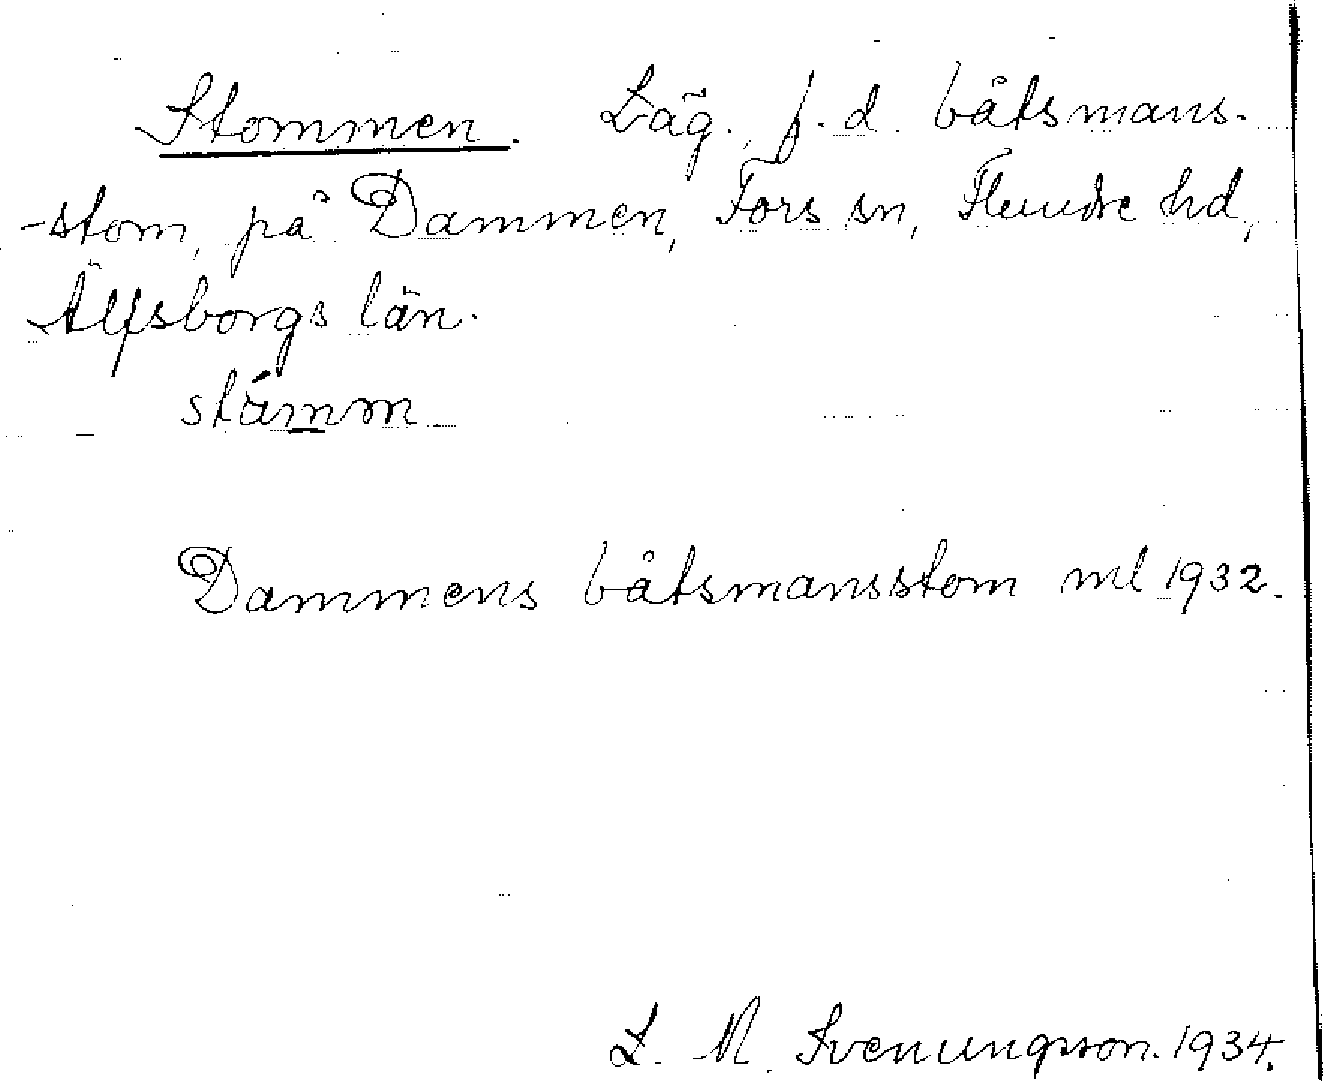 Stommen. Läg. f.d. båtsmans-
-stom, på Dammen, Fors sn, Flundre hd,
Älfsborgs län.
ståmm
Dammens båtsmansstom ml 1932.
L. M. Svenungsson. 1934.